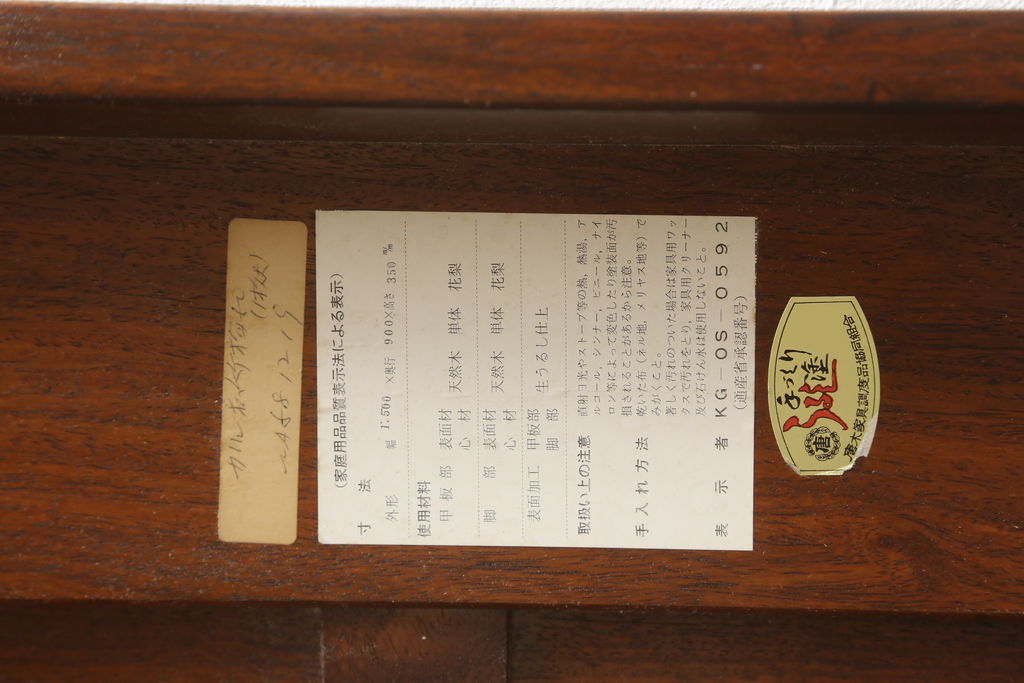 (家庭用品品質表示法による表示)
寸法
外形 幅 1,500 ×奥行 900×高さ 350 ㎜
使用材料
甲板部 表面材 天然木 単体 花梨
心材
脚部 表面材 天然木 単体 花梨
心材
表面加工 甲板部 生うるし仕上
脚部
取扱い上の注意 直射日光やストーブ等の熱, 熱湯, ア
ルコール, シンナー, ビニール, ナイ
ロン等によって変色したり塗装面が汚
損されることがあるから注意。
手入れ方法 乾いた布(ネル地, メリヤス地等)で
みがくこと。
著しく汚れのついた場合は家具用ワッ
クスで汚れをとり, 家具用クリーナー
及び石けん水は使用しないこと。
表示者 KG-OS-0592
(通産省承認番号)
手づくり
うるし塗
唐
唐木家具調度品協同組合